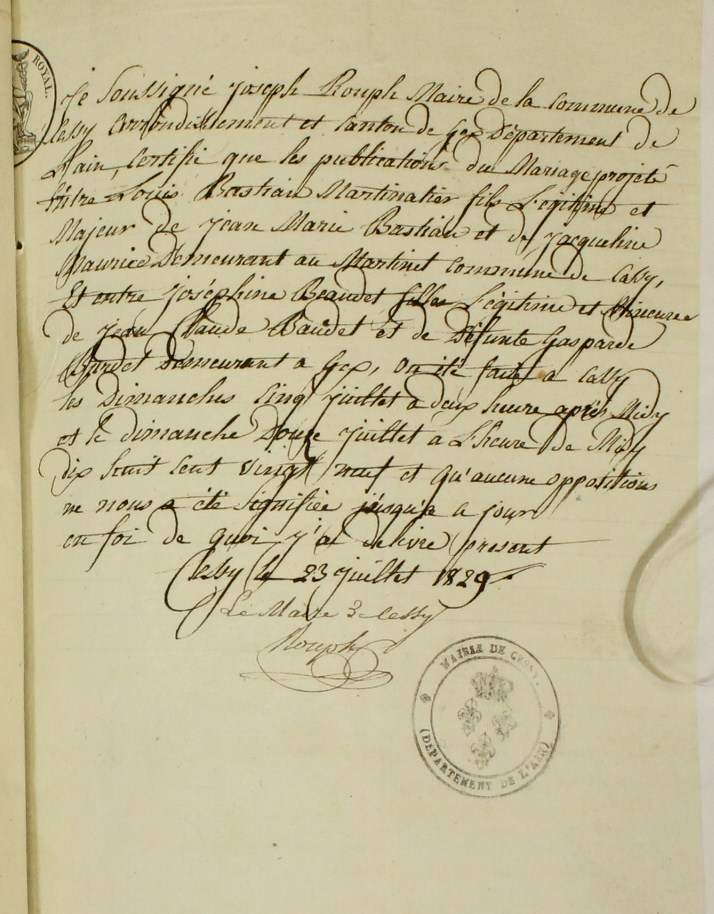 ROYAL.
Je Soussigné Joseph Rouph Maire de la Commune de
Cessy Arrondissement et Canton de Gex Département de
L'ain, Certifie que les publications du Mariage projeté
Entre Louis Bastian Martinatier fils Légitime et
Majeur de Jean Marie Bastian et de Jacqueline
Maurice Demeurant au Martinet Commune de Cessy,
Et entre Joséphine Beaudet fille Légitime et Mineure
de Jean Claude Baudet et de Défunte Gasparde
Demeurant a Gex, on été faite a Cessy
les Dimanches Cinq Juillet a deux heure après Midy
et le dimanche Douze Juillet a L'heure de Midy
Dix huit Cent Vingt neuf et qu'aucune oppositions
ne nous a été signifiée jusqu'a a jour
en foi de quoi j'ai délivré present
Cessy le 23 juillet 1829
Le Maire de Cessy
Rouph
MAIRIE DE CESSY.
(DÉPARTEMENT DE L'AIN)